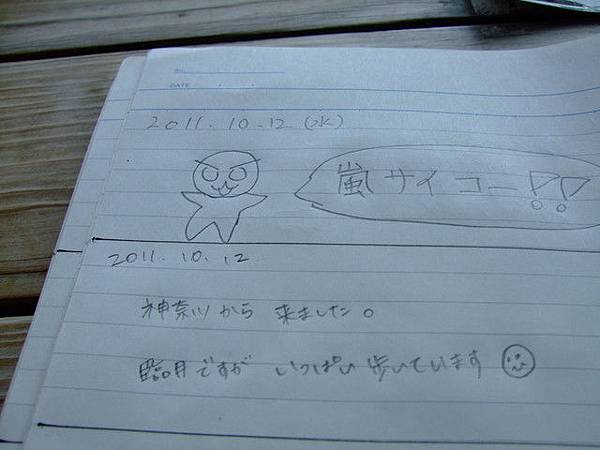 NO.
DATE
2011.10.12 (水)
嵐サイコー!!
2011.10.12
神奈川から来ました。
臨月ですが いっぱい歩いています